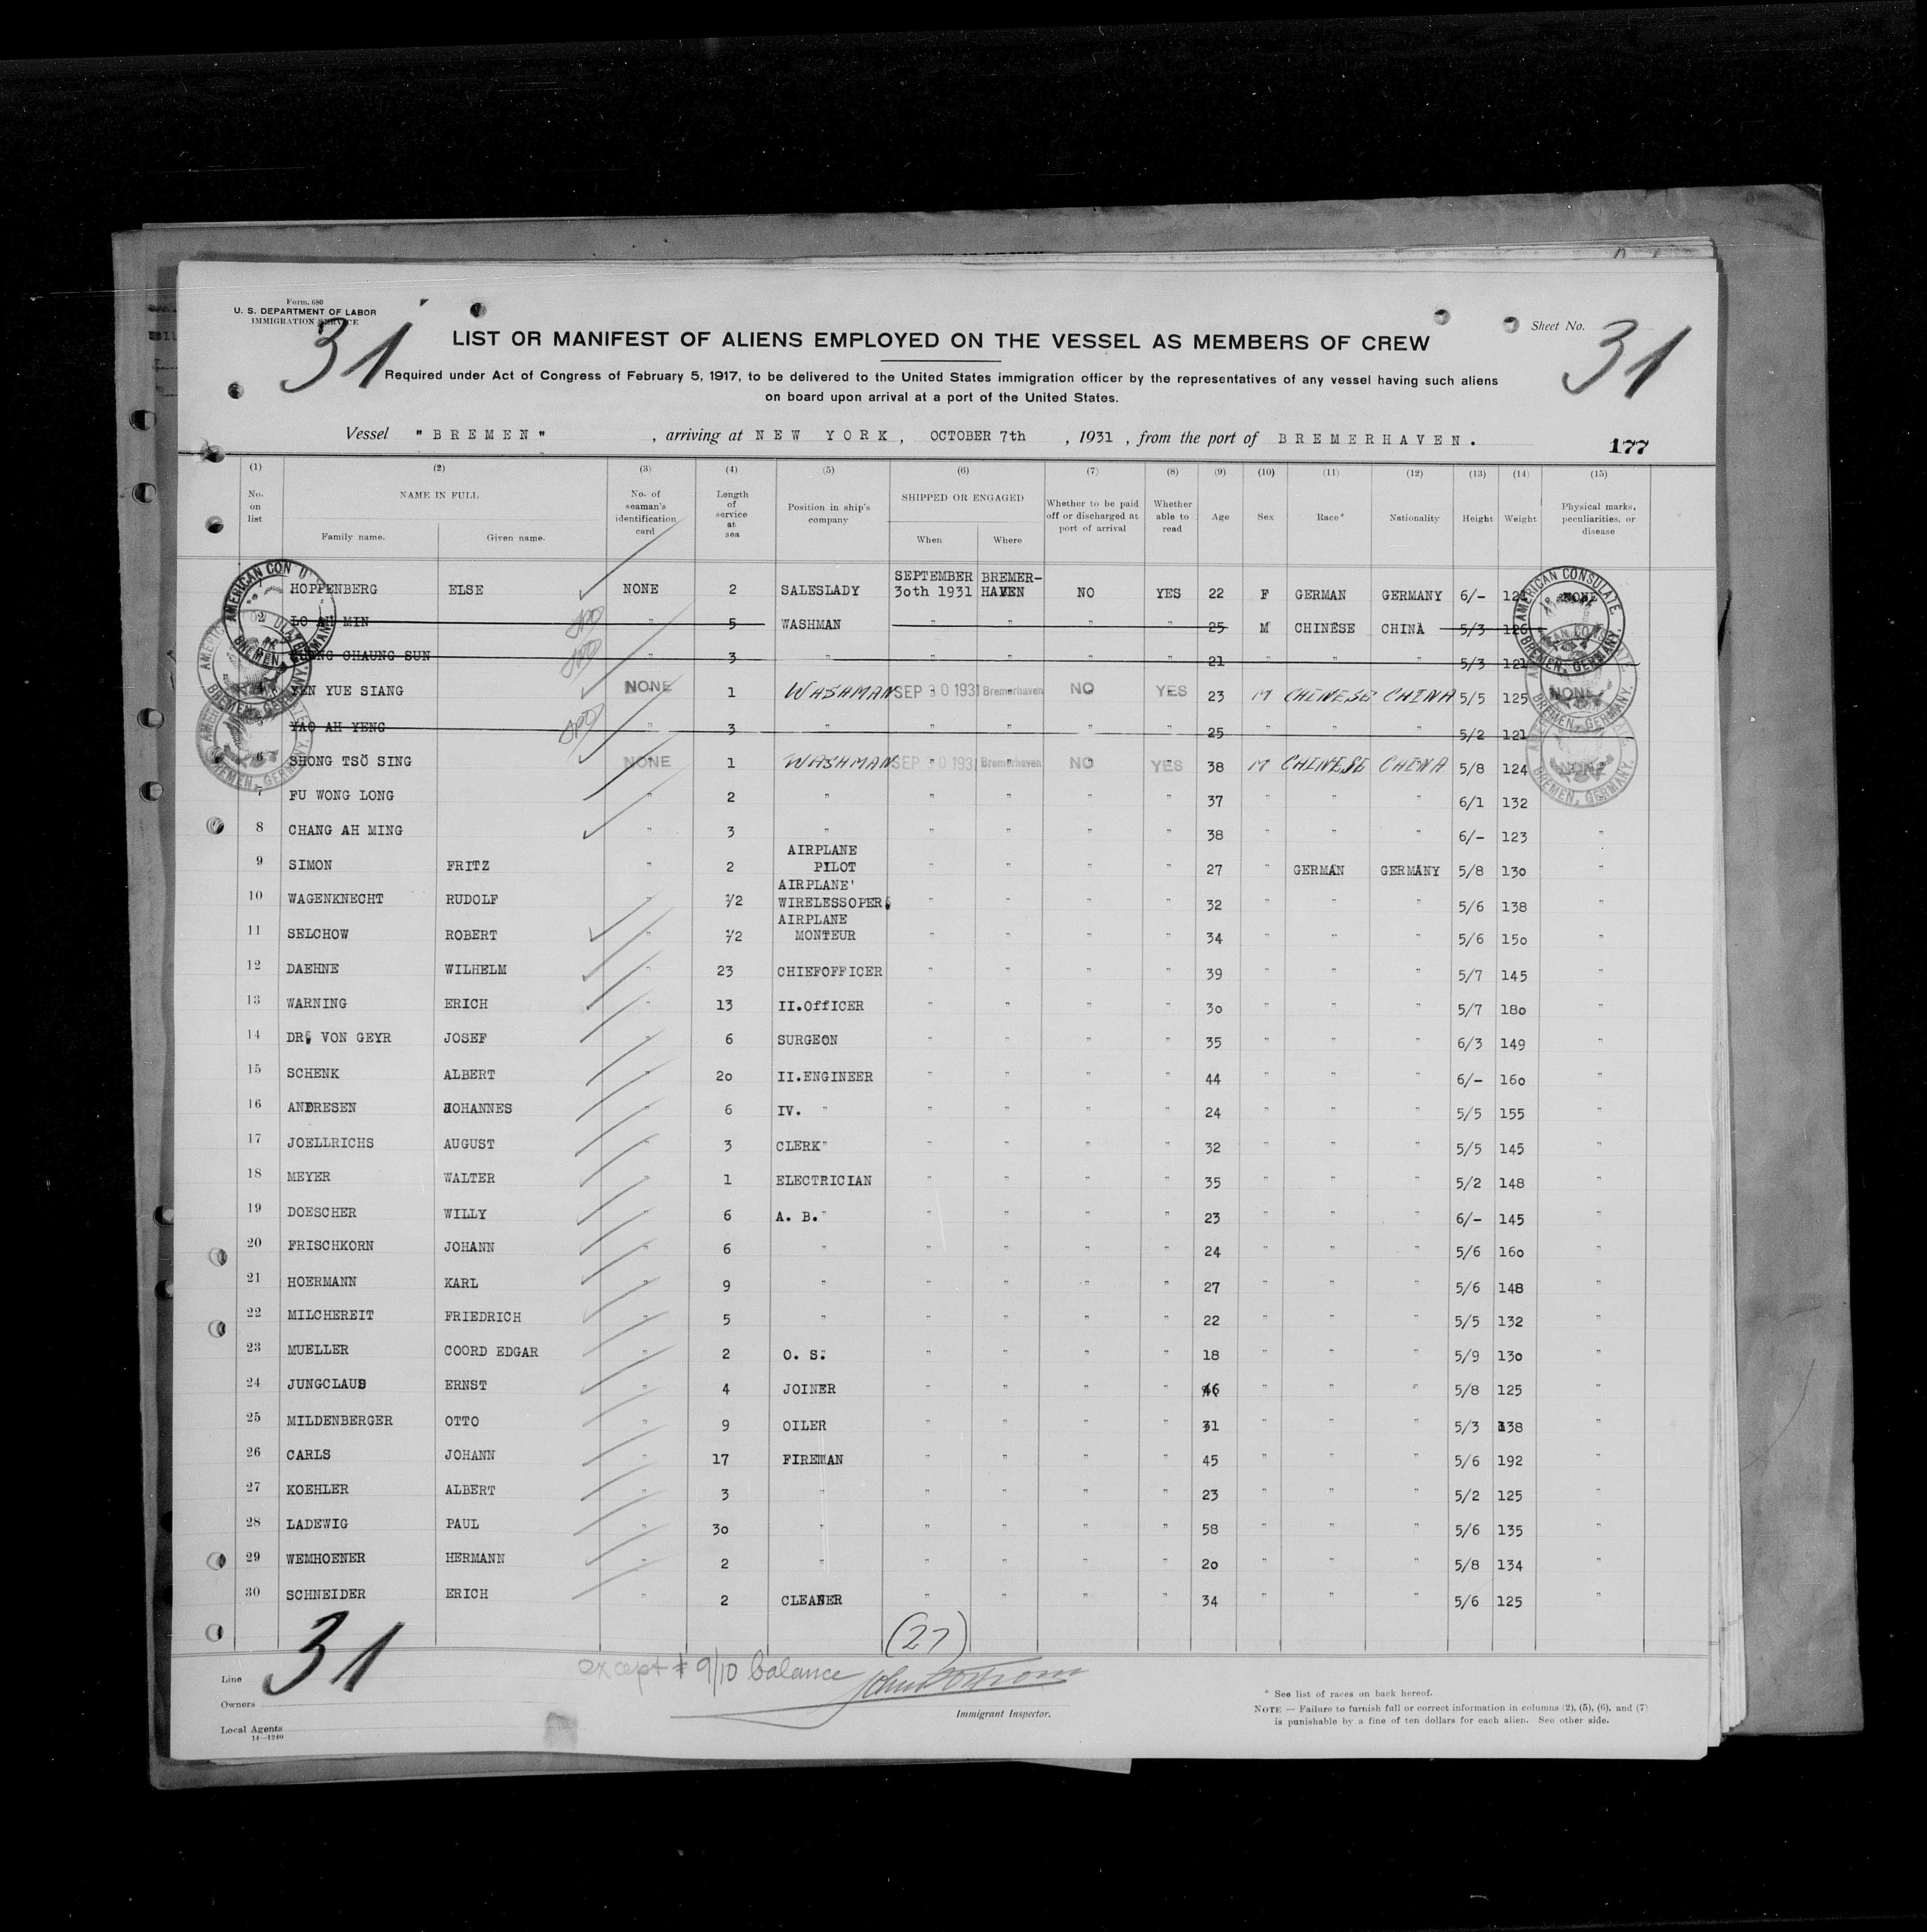 Form. 680
U. S. DEPARTMENT OF LABOR
IMMIGRATION SERVICE
31
Sheet No. 31
LIST OR MANIFEST OF ALIENS EMPLOYED ON THE VESSEL AS MEMBERS OF CREW
Required under Act of Congress of February 5, 1917, to be delivered to the United States immigration officer by the representatives of any vessel having such aliens
on board upon arrival at a port of the United States.
Vessel "BREMEN", arriving at NEW YORK, OCTOBER 7th, 1931, from the port of BREMERHAVEN.
177
(1) (2) (3) (4) (5) (6) (7) (8) (9) (10) (11) (12) (13) (14) (15)
No. on list
NAME IN FULL
Family name. Given name.
No. of seaman's identification card
Length of service at sea
Position in ship's company
SHIPPED OR ENGAGED
When Where
Whether to be paid off or discharged at port of arrival
Whether able to read
Age
Sex
Race*
Nationality
Height
Weight
Physical marks, peculiarities, or disease
1 HOPPENBERG ELSE NONE 2 SALESLADY SEPTEMBER 30th 1931 BREMER-HAVEN NO YES 22 F GERMAN GERMANY 6/- 121 NONE
2 LO AH MIN " 5 WASHMAN " " " " 25 M CHINESE CHINA 5/3 126
CHAUNG SUN " 3 " " " " " 21 " " " 5/3 121
YEN YUE SIANG NONE 1 WASHMAN SEP 30 1931 Bremerhaven NO YES 23 M CHINESE CHINA 5/5 125 NONE
YAO AH YENG " 3 " " " " " 25 " " " 5/2 121
6 SHONG TSÖ SING NONE 1 WASHMAN SEP 30 1931 Bremerhaven NO YES 38 M CHINESE CHINA 5/8 124 NONE
7 FU WONG LONG " 2 " " " " " 37 " " " 6/1 132
8 CHANG AH MING " 3 " " " " " 38 " " " 6/- 123 "
9 SIMON FRITZ " 2 AIRPLANE PILOT " " " " 27 " GERMAN GERMANY 5/8 130 "
10 WAGENKNECHT RUDOLF " 1/2 AIRPLANE WIRELESSOPER. " " " " 32 " " " 5/6 138 "
11 SELCHOW ROBERT " 1/2 AIRPLANE MONTEUR " " " " 34 " " " 5/6 150 "
12 DAEHNE WILHELM " 23 CHIEFOFFICER " " " " 39 " " " 5/7 145 "
13 WARNING ERICH " 13 II.OffICER " " " " 30 " " " 5/7 180 "
14 DR. VON GEYR JOSEF " 6 SURGEON " " " " 35 " " " 6/3 149 "
15 SCHENK ALBERT " 20 II.ENGINEER " " " " 44 " " " 6/- 160 "
16 ANDRESEN JOHANNES " 6 IV. " " " " " 24 " " " 5/5 155 "
17 JOELLRICHS AUGUST " 3 CLERK" " " " " 32 " " " 5/5 145 "
18 MEYER WALTER " 1 ELECTRICIAN " " " " 35 " " " 5/2 148 "
19 DOESCHER WILLY " 6 A. B." " " " " 23 " " " 6/- 145 "
20 FRISCHKORN JOHANN " 6 " " " " " 24 " " " 5/6 160 "
21 HOERMANN KARL " 9 " " " " " 27 " " " 5/6 148 "
22 MILCHEREIT FRIEDRICH " 5 " " " " " 22 " " " 5/5 132 "
23 MUELLER COORD EDGAR " 2 O. S. " " " " 18 " " " 5/9 130 "
24 JUNGCLAUS ERNST " 4 JOINER " " " " 46 " " " 5/8 125 "
25 MILDENBERGER OTTO " 9 OILER " " " " 31 " " " 5/3 138 "
26 CARLS JOHANN " 17 FIREMAN " " " " 45 " " " 5/6 192 "
27 KOEHLER ALBERT " 3 " " " " " 23 " " " 5/2 125 "
28 LADEWIG PAUL " 30 " " " " " 58 " " " 5/6 135 "
29 WEMHOENER HERMANN " 2 " " " " " 20 " " " 5/8 134 "
30 SCHNEIDER ERICH " 2 CLEANER " " " " 34 " " " 5/6 125 "
(27)
31
except # 9/10 balance
Immigrant Inspector.
Line
Owners
Local Agents
14—1240
* See list of races on back hereof.
NOTE — Failure to furnish full or correct information in columns (2), (5), (6), and (7)
is punishable by a fine of ten dollars for each alien. See other side.
AMERICAN CONSULATE
BREMEN, GERMANY.